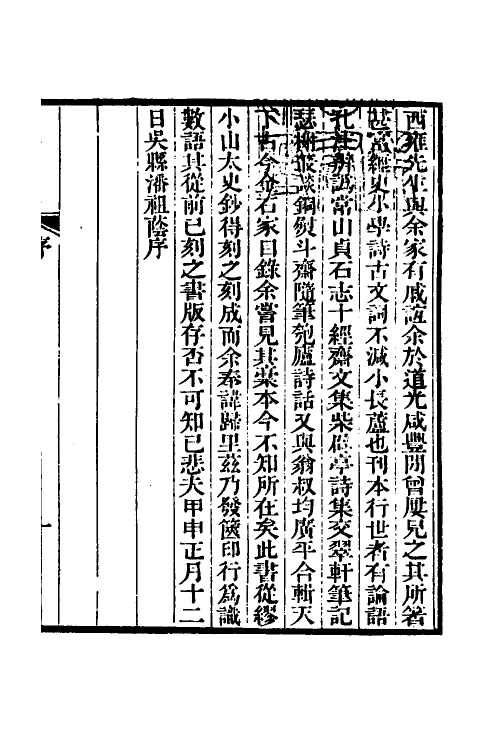 西雍先生與余家有戚誼余於道光咸豐閒曾屢見之其所著
甚富經史小學詩古文詞不減小長蘆也刊本行世者有論語
孔注辨譌常山貞石志十經齋文集柴辟亭詩集交翠軒筆記
瑟榭叢談銅熨斗齋隨筆匏廬詩話又與翁叔均廣平合輯天
下古今金石家目錄余嘗見其槀本今不知所在矣此書從繆
小山太史鈔得刻之刻成而余奉諱歸里茲乃發篋印行爲識
數語其從前已刻之書版存否不可知已悲夫甲申正月十二
日吳縣潘祖蔭序
序
一